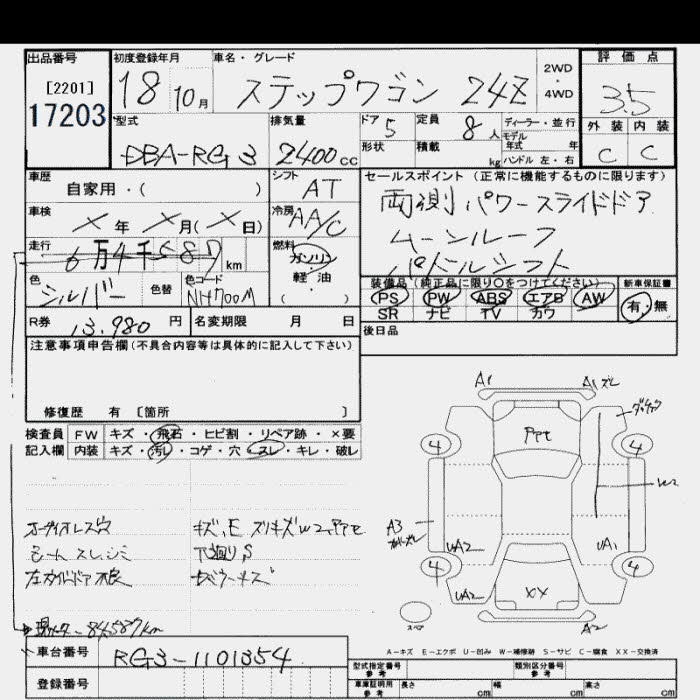 出品番号
[2201]
17203
初度登録年月
18 10月
車名・グレード
ステップワゴン 24Z
2WD
・
4WD
評価点
3.5
外装 内装
C C
型式
DBA-RG3
排気量
2400cc
ドア 5
形状
定員 8人
積載 kg
ディーラー・並行
モデル
年式 年
ハンドル 左・右
車歴
自家用・( )
シフト
AT
セールスポイント (正常に機能するものに限ります)
両側パワースライドドア
ムーンルーフ
パドルシフト
車検
× 年 × 月(× 日)
冷房
AA/C
走行
6万4千587km
燃料
ガソリン
軽・油
( )
色
シルバー
色替
色コード
NH700M
装備品 (純正品に限り○をつけてください)
PS PW ABS エアB AW
SR ナビ TV カワ
新車保証書
有・無
R券 13,980 円
名変期限 月 日
後日品
注意事項申告欄 (不具合内容等は具体的に記入して下さい)
修復歴 有 [箇所 ]
検査員 FW キズ・飛石・ヒビ割・リペア跡・×要
記入欄 内装 キズ・汚レ・コゲ・穴・スレ・キレ・破レ
オーディオレス穴
シートスレ、シミ
左ガイドドア不良
キズ,E スリキズW2,PPte
下廻りS
現メーター84,587km
車台番号 RG3-1101354
登録番号
A1
A1ズレ
PPte
4
4
W2
A3
UA2
UA1
4
4
UA2
XX
スペア
A2
A-キズ E-エクボ U-凹み W-補修跡 S-サビ C-腐食 XX-交換済
型式指定番号
参考
類別区分番号
参考
車庫証明用
参考
長さ cm 幅 cm 高さ cm